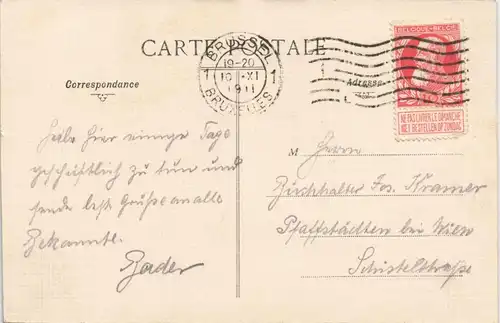 CARTE POSTALE
BRUSSEL
19-20
10 XI
1911
BRUXELLES
1 1
BELGIQUE BELGIE
NE PAS LIVRER LE DIMANCHE
NIET BESTELLEN OP ZONDAG
Correspondance
Adresse
Habe hier einige Tage
geschäftlich zu tun und
sende beste Grüße an alle
Bekannte.
Bader
M Herrn
Buchhalter Jos. Kramer
Pfaffstädten bei Wien